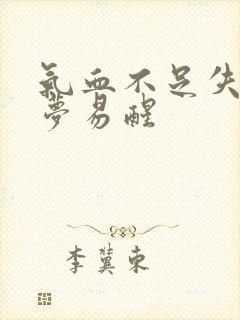 氣血不足失
夢易醒
李冀東